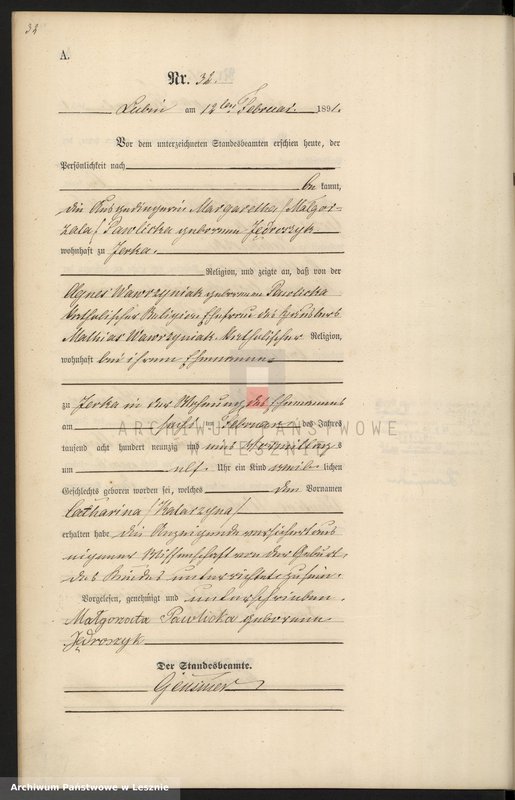 32
A.
Nr. 32.
Lubin am 12ten Februar 1891.
Vor dem unterzeichneten Standesbeamten erschien heute, der
Persönlichkeit nach
be kannt,
die Ausgedingerin Margaretha /Malgor-
zata/ Pawlicka geborene Jędroszyk
wohnhaft zu Jerka.
Religion, und zeigte an, daß von der
Agnes Wawrzyniak geborenen Pawlicka
katholischer Religion Ehefrau des Häuslers
Mathias Wawrzyniak katholischer Religion,
wohnhaft bei ihrem Ehemanne
zu Jerka in der Wohnung des Ehemannes
am sechs ten Februar des Jahres
tausend acht hundert neunzig und eins Vormittags
um elf Uhr ein Kind weib lichen
Geschlechts geboren worden sei, welches den Vornamen
Catharina /Katarzyna/
erhalten habe. die Anzeigende versichert aus
eigener Wissenschaft von der Geburt
des Kindes unterrichtet zu sein.
Vorgelesen, genehmigt und unterschrieben.
Małgorzata Pawlicka geborene
Jędroszyk
Der Standesbeamte.
ARCHIWUM PAŃSTWOWE
LESZNIE
Archiwum Państwowe w Lesznie